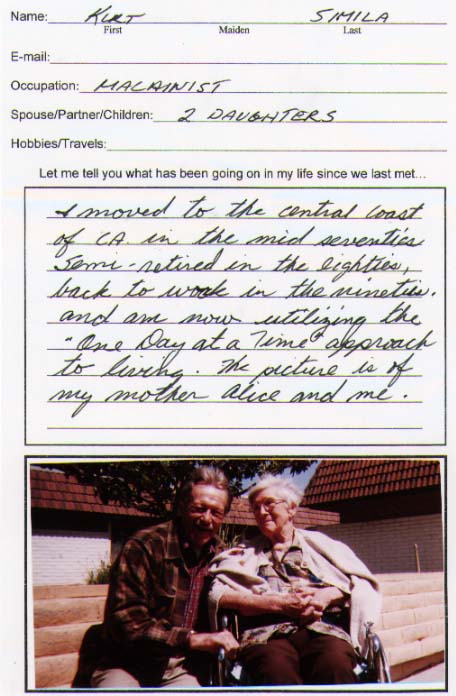 Name: KURT SIMILA
First Maiden Last
E-mail:
Occupation: MACAINIST
Spouse/Partner/Children: 2 DAUGHTERS
Hobbies/Travels:
Let me tell you what has been going on in my life since we last met...
I moved to the central coast
of CA. in the mid seventies
Semi-retired in the eighties,
back to work in the nineties.
and am now utilizing the
"One Day at a Time" approach
to living. The picture is of
my mother Alice and me.